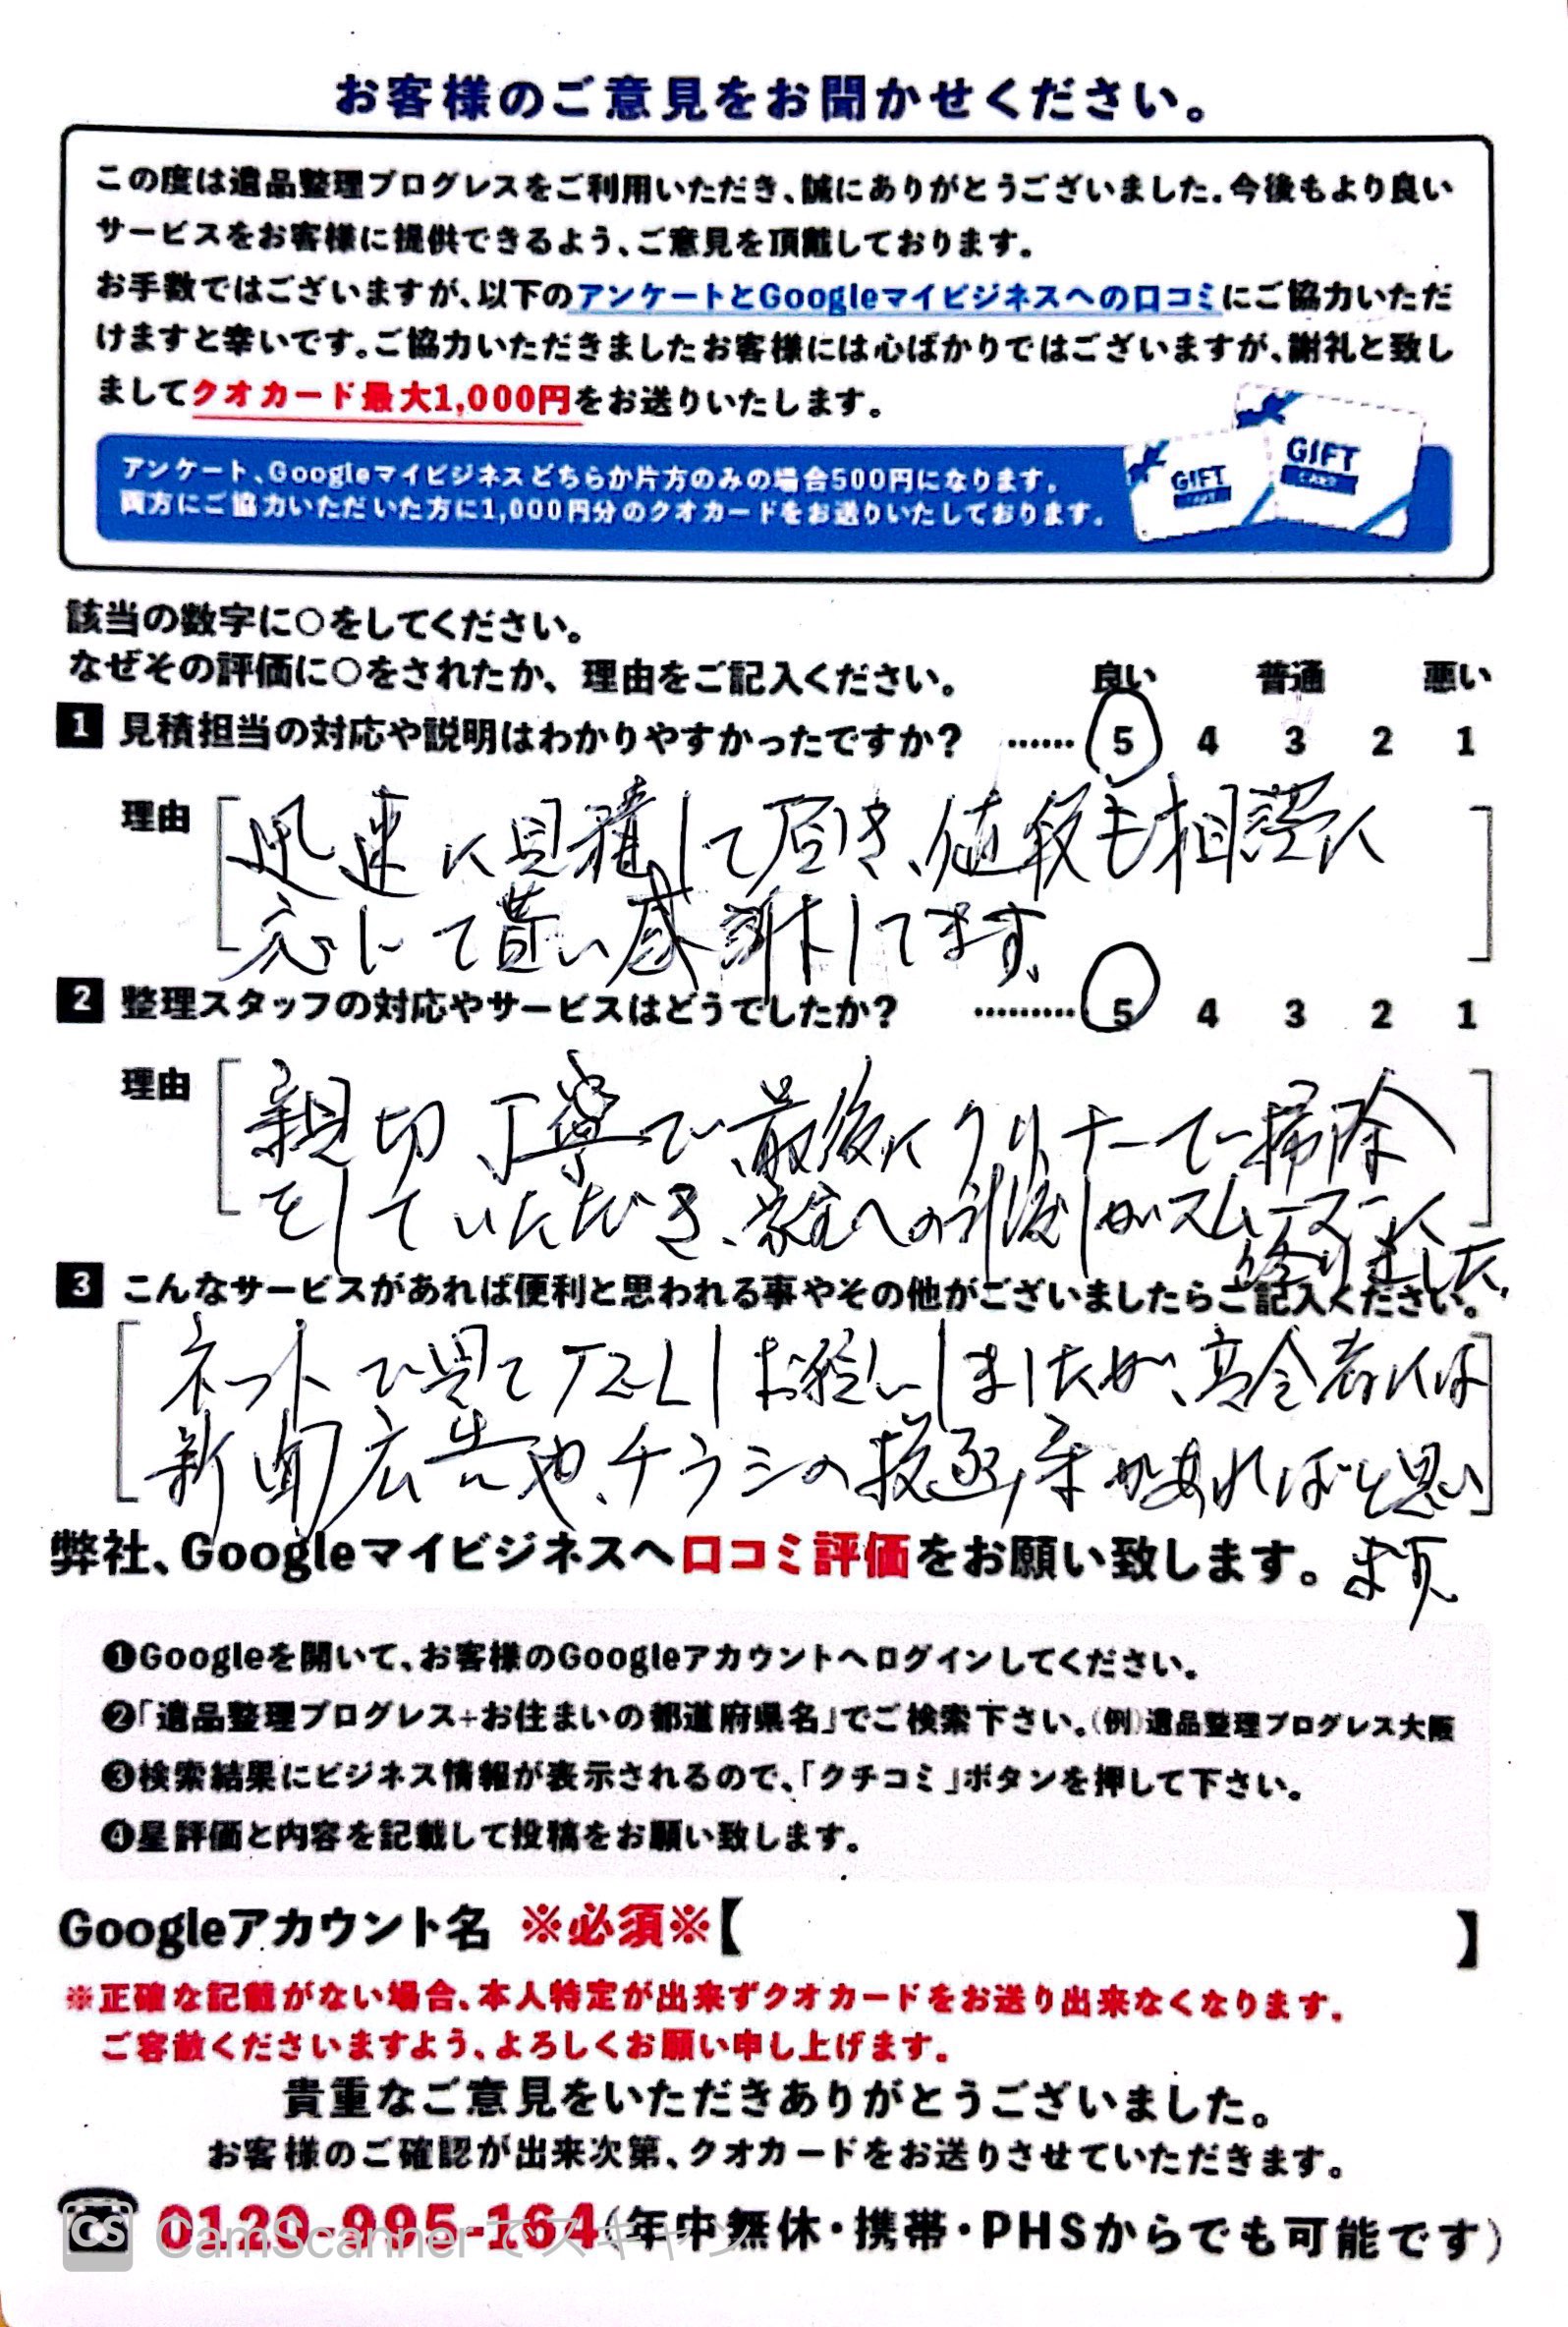 お客様のご意見をお聞かせください。
この度は遺品整理プログレスをご利用いただき、誠にありがとうございました。今後もより良い
サービスをお客様に提供できるよう、ご意見を頂戴しております。
お手数ではございますが、以下のアンケートとGoogleマイビジネスへの口コミにご協力いただ
けますと幸いです。ご協力いただきましたお客様には心ばかりではございますが、謝礼と致し
ましてクオカード最大1,000円をお送りいたします。
アンケート、Googleマイビジネスどちらか片方のみの場合500円になります。
両方にご協力いただいた方に1,000円分のクオカードをお送りいたしております。
GIFT
CARD
GIFT
CARD
該当の数字に○をしてください。
なぜその評価に○をされたか、理由をご記入ください。 良い 普通 悪い
1 見積担当の対応や説明はわかりやすかったですか? …… 5 4 3 2 1
理由 迅速に見積して頂き、値段も相談に
応じて貰い感謝してます。
2 整理スタッフの対応やサービスはどうでしたか? ……… 5 4 3 2 1
理由 親切丁寧で、最後にクリーナーで掃除
をしていただき、家主への引渡しがスムーズに
終りました。
3 こんなサービスがあれば便利と思われる事やその他がございましたらご記入ください。
ネットで見てTELしお願いしましたが、高令者には
新聞広告や、チラシの投函等があればと思い
ます。
弊社、Googleマイビジネスへ口コミ評価をお願い致します。
❶Googleを開いて、お客様のGoogleアカウントへログインしてください。
❷「遺品整理プログレス+お住まいの都道府県名」でご検索下さい。(例)遺品整理プログレス大阪
❸検索結果にビジネス情報が表示されるので、「クチコミ」ボタンを押して下さい。
❹星評価と内容を記載して投稿をお願い致します。
Googleアカウント名 ※必須※【 】
※正確な記載がない場合、本人特定が出来ずクオカードをお送り出来なくなります。
ご容赦くださいますよう、よろしくお願い申し上げます。
貴重なご意見をいただきありがとうございました。
お客様のご確認が出来次第、クオカードをお送りさせていただきます。
0120-995-164(年中無休・携帯・PHSからでも可能です)
CS CamScannerでスキャン